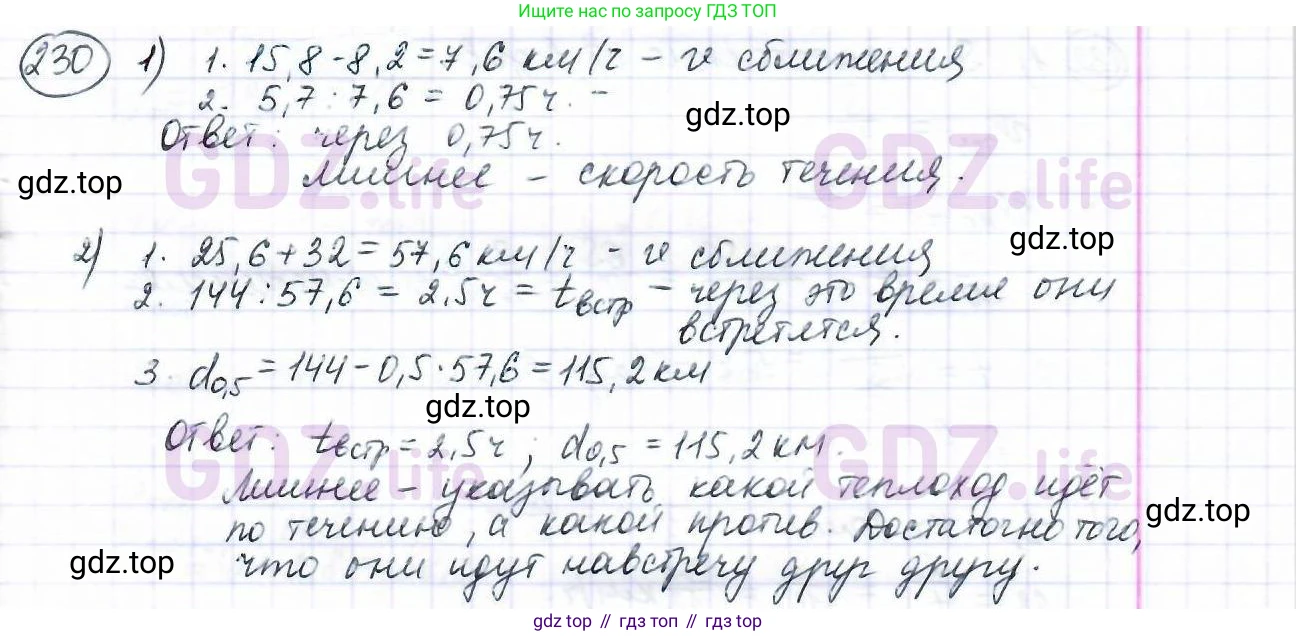 Ищите нас по запросу ГДЗ ТОП
230 1) 1. 15,8-8,2=7,6 км/ч - υ сближения
2. 5,7:7,6 = 0,75ч. -
gdz.top
Ответ: через 0,75ч.
GDZ.life GDZ.life
Лишнее - скорость течения.
gdz.top
2) 1. 25,6+32=57,6 км/ч - υ сближения
gdz.top
2. 144:57,6 = 2,5ч = tвстр - через это время они
встретятся.
3. d0,5=144-0,5·57,6=115,2км
gdz.top
Ответ: tвстр=2,5ч; d0,5=115,2км.
GDZ.life GDZ.life
Лишнее - указывать какой теплоход идёт
по течению, а какой против. Достаточно того,
gdz.top
что они идут навстречу друг другу.
gdz.top
gdz топ // гдз топ // gdz top